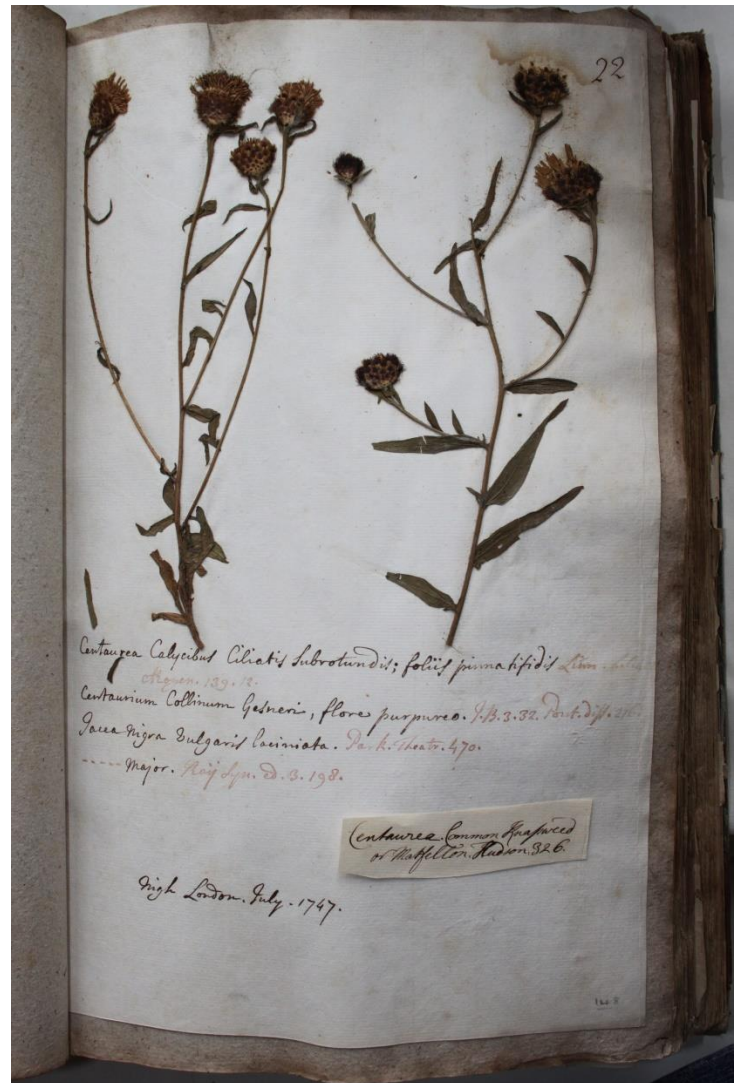 22
Centaurea Calycibus Ciliatis Subrotundis; foliis pinnatifidis Linn.
139. 12.
Centaurium Collinum Gesneri, flore purpureo. J. B. 3. 32. Pont. diss.
Jacea Nigra Vulgaris laciniata. Park. Theatr. 470.
----- Major. Raij Syn. ed. 3. 198.
Centaurea. Common Knapweed
or Matfellon. Hudson. 326.
Nigh London. July. 1747.